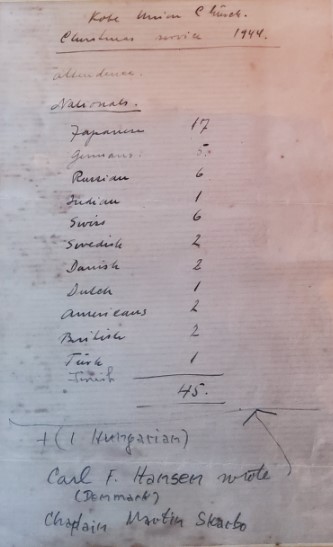 Kobe Union Church.
Christmas service 1944.
attendance.
Nationals.
Japanese 17
Germans. 5.
Russian 6
Indian 1
Swiss 6
Swedish 2
Danish 2
Dutch 1
Americans 2
British 2
Türk 1
45.
+ (1 Hungarian)
Carl F. Hansen wrote
(Denmark)
Chaplain Martin Skarbo